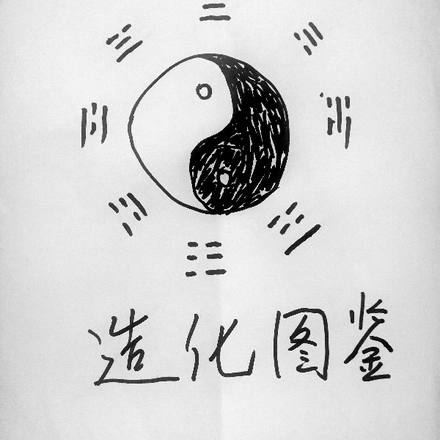 造化图鉴